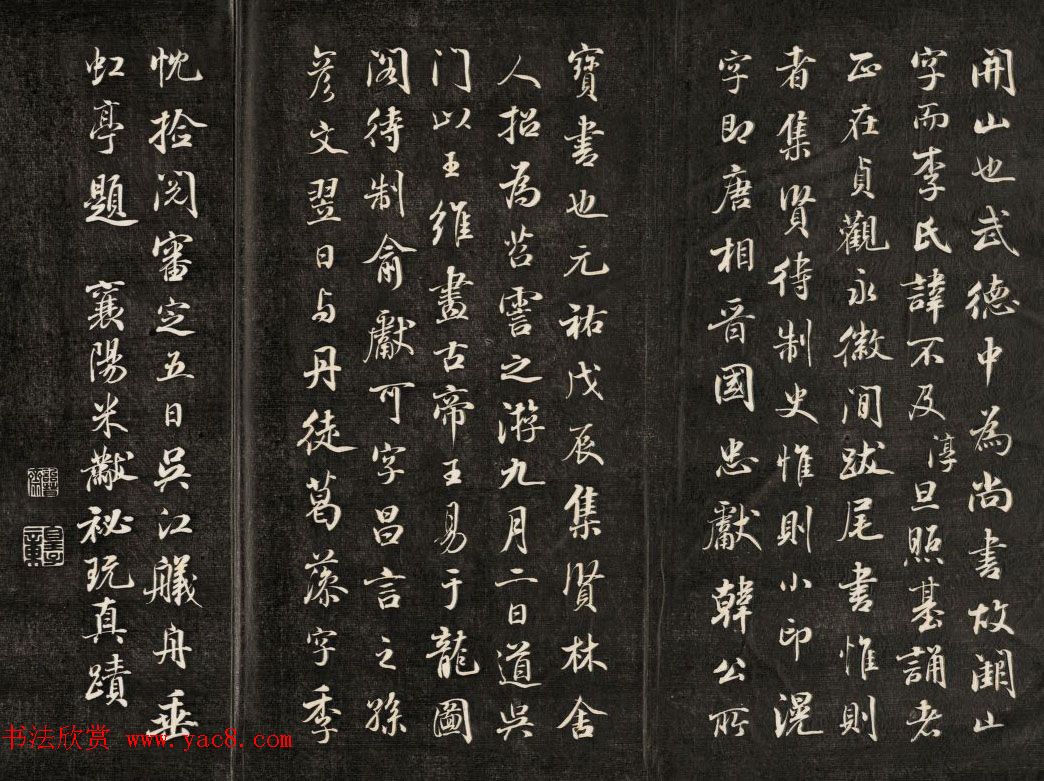 開山也武德中為尚書故開山
字而李氏諱不及淳旦照基誦者
正在貞觀永徽間跋尾書惟則
者集賢待制史惟則小印滉
字即唐相晉國忠獻韓公所
寶書也元祐戊辰集賢林舍
人招為苕霅之游九月二日道吳
门以王維畫古帝王易于龍圖
閣待制俞獻可字昌言之孫
彥文翌日与丹徒葛藻字季
忱拾閱審定五日吳江艤舟垂
虹亭題 襄陽米黻祕玩真蹟
书法欣赏 www.yac8.com